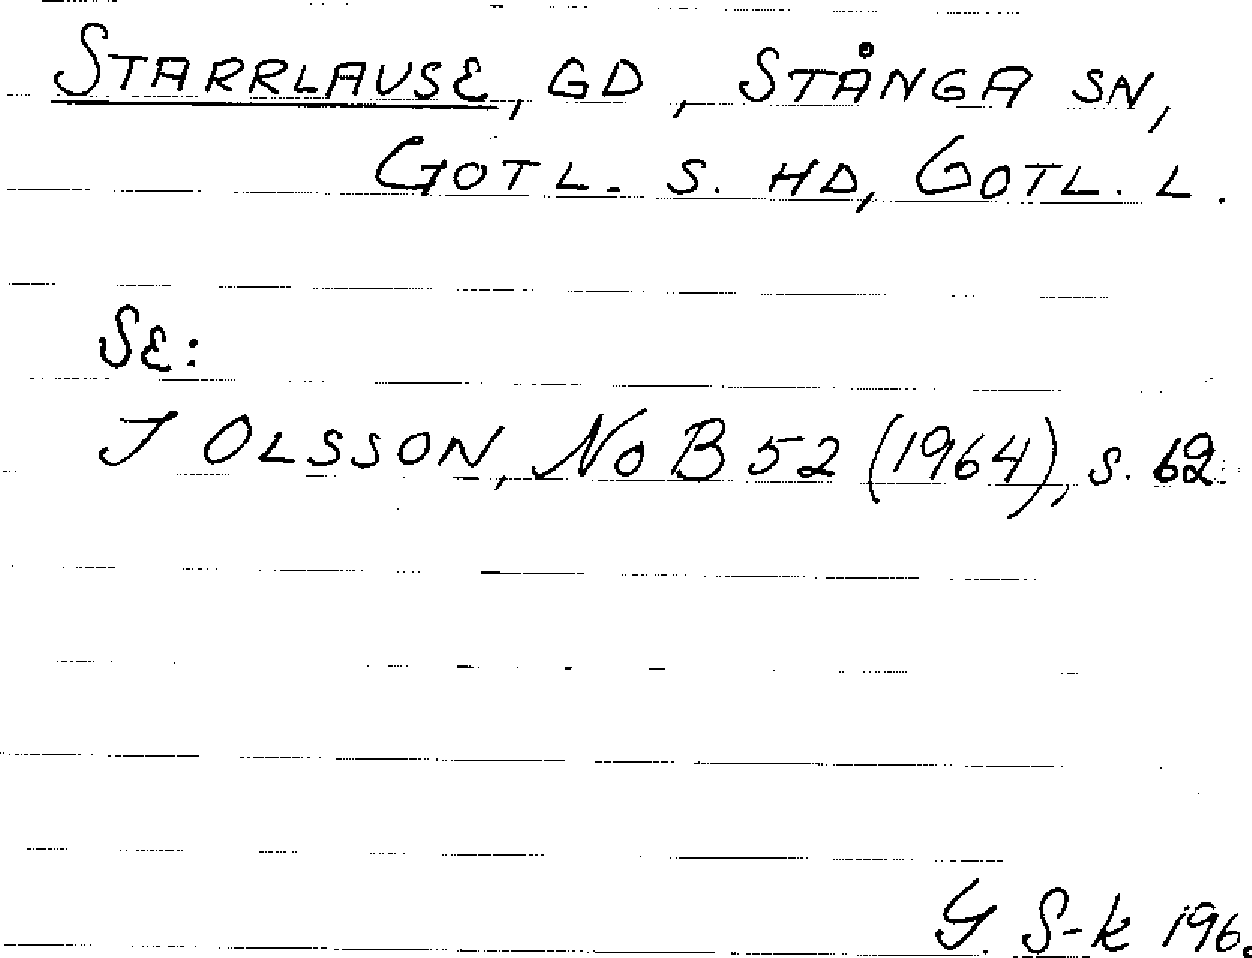 STARRLAUSE, GD, STÅNGA SN,
GOTL. S. HD, GOTL. L.
SE:
I OLSSON, NoB 52 (1964), s. 62.
G. S-k 196